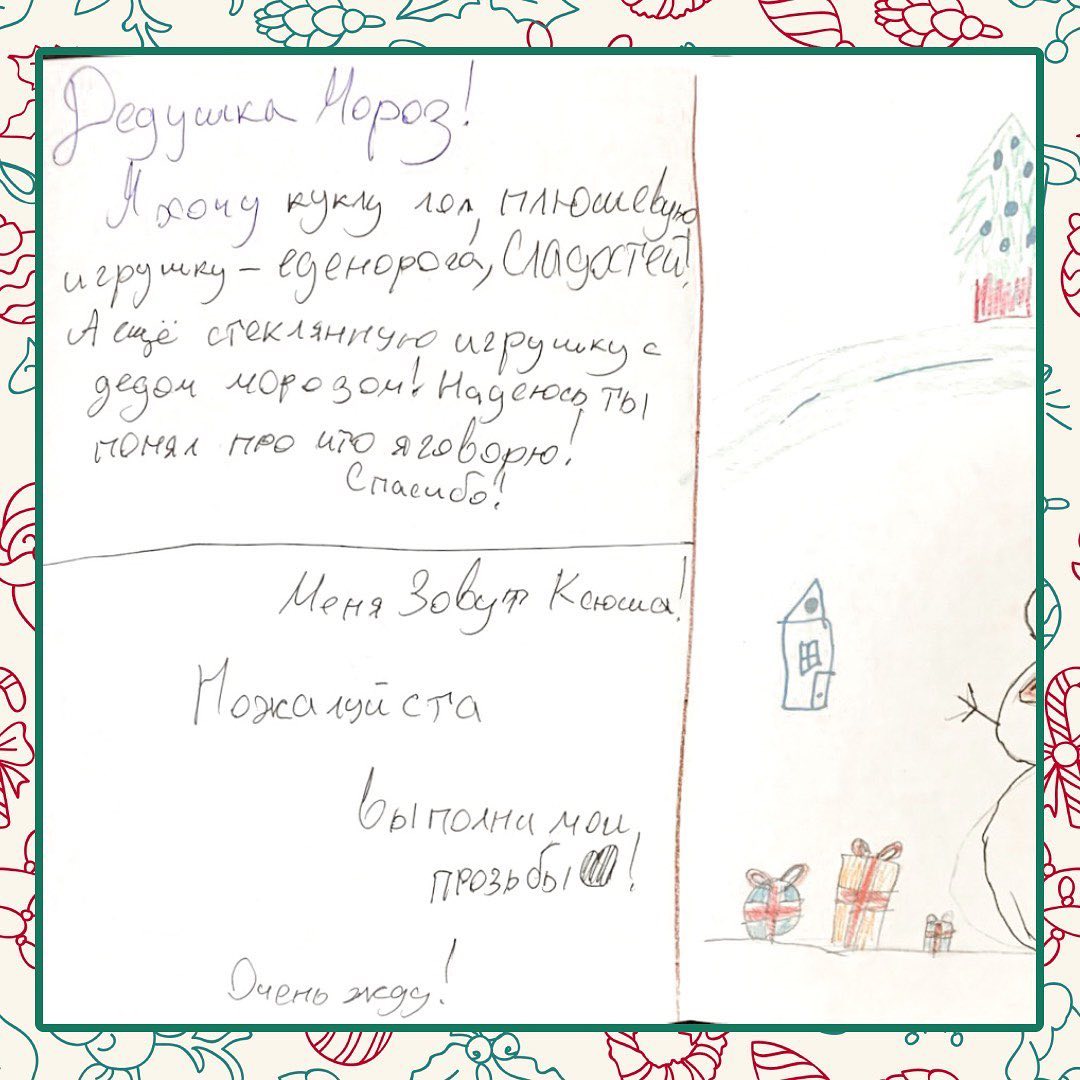 Дедушка Мороз!
Я хочу куклу лол, плюшевую
игрушку – еденорога, Сладостей!
А ещё стеклянную игрушку с
дедом морозом! Надеюсь ты
понял про что я говорю!
Спасибо!
Меня Зовут Ксюша!
Пожалуйста
Выполни мои,
прозьбы!
Очень жду!